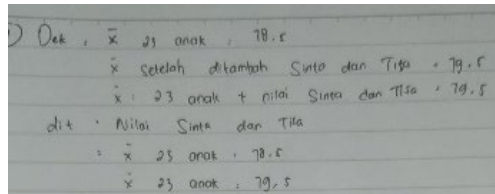 1) Dek, x̄ 23 anak, 78.5
x̄ setelah ditambah Sinta dan Tita = 79.5
x̄ : 23 anak + nilai Sinta dan Tita = 79,5
dit : Nilai Sinta dan Tita
= x̄ 23 anak, 78.5
x̄ 25 anak : 79,5